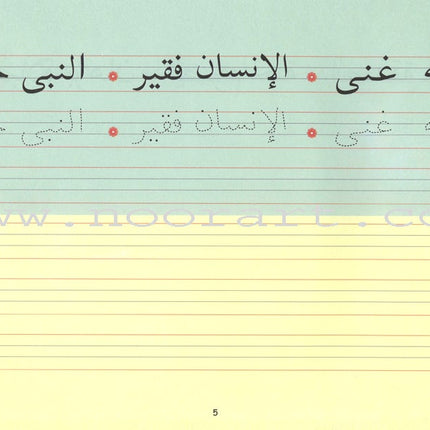 غنى • الإنسان فقير • النبى
غنى • الإنسان فقير • النبى
www.noorart.co
5